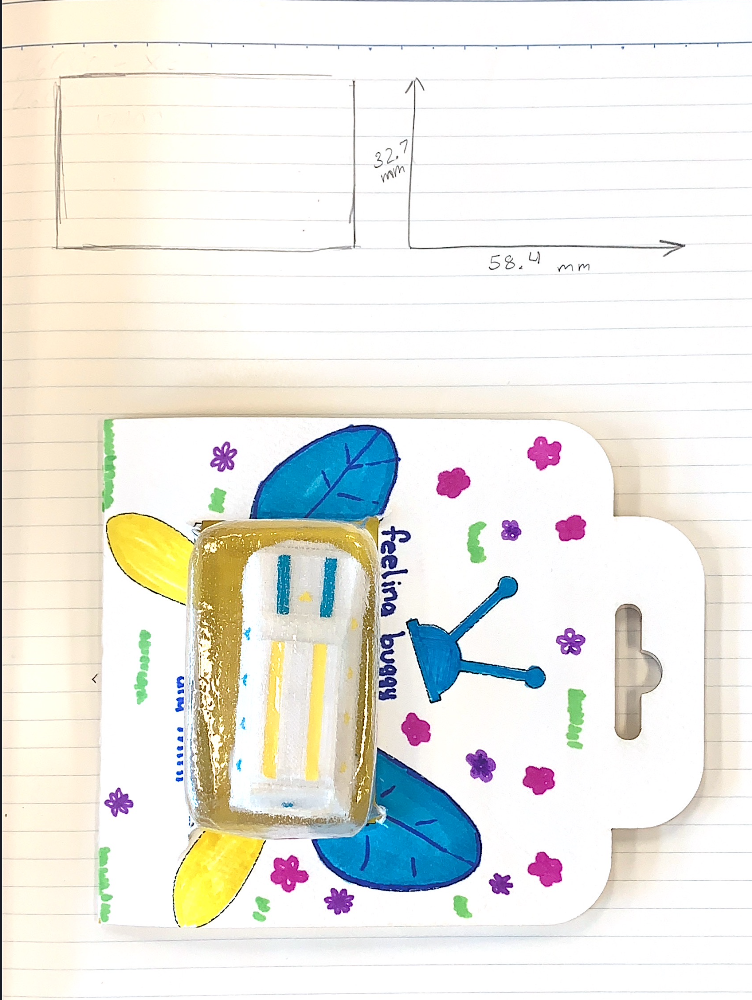 32.7
mm
58.4 mm
feelina buggy